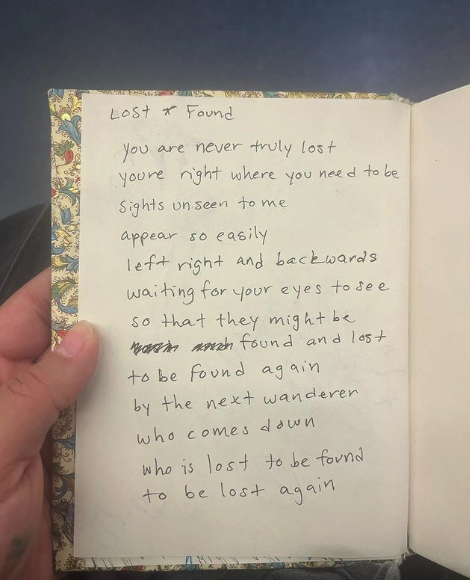 Lost & Found
you are never truly lost
youre right where you need to be
sights unseen to me
appear so easily
left right and backwards
waiting for your eyes to see
so that they might be
found and lost
to be found again
by the next wanderer
who comes down
who is lost to be found
to be lost again